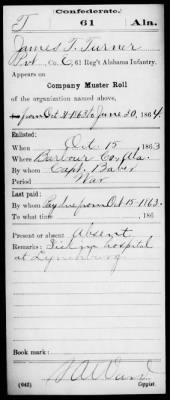 Confederate.
T 61 Ala.
James T. Turner
Pvt, Co. E, 61 Reg't Alabama Infantry.
Appears on
Company Muster Roll
of the organization named above,
from Oct 31 1863 to June 30, 1864.
Enlisted:
When Oct 15, 1863
Where Barbour Co, Ala.
By whom Capt.
Period War
Last paid:
By whom Pay due from Oct 15-1863.
To what time , 186 .
Present or absent Absent
Remarks: Sick in hospital
at Lynchburg
Book mark:
(642) Copyist.